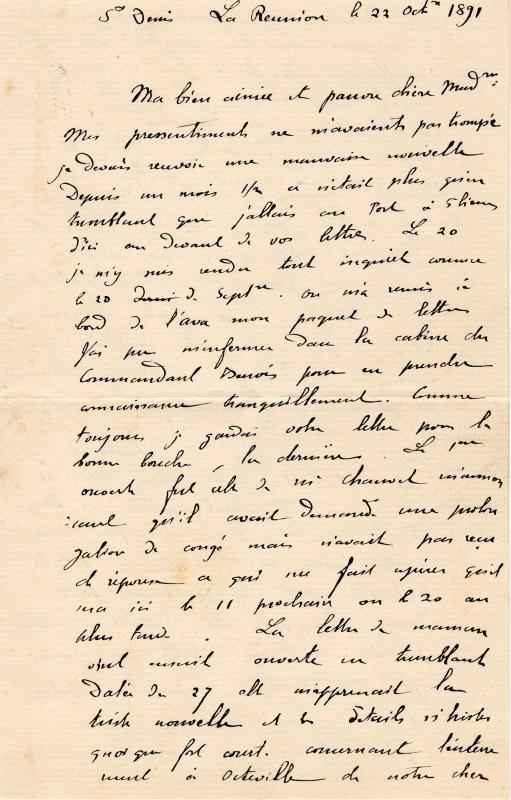 St Denis La Reunion le 22 Octre 1891
Ma bien aimée et pauvre chère Mad
Mes pressentiments ne m'avaient pas trompé
je devais recevoir une mauvaise nouvelle
Depuis un mois 1/2 ce n'était plus qu'en
tremblant que j'allais au Port à 5 lieues
d'ici au devant de vos lettres. Le 20
je m'y suis rendu tout inquiet comme
le 20 de Septre. on m'a remis à
bord de l'ava mon paquet de lettres
J'ai pu m'enfermer dans la cabine du
Commandant pour en prendre
connaissance tranquillement. Comme
toujours je gardais votre lettre pour la
bonne bouche, la dernière. La 1ere
ouverte fut celle de mr Chauvet m'annon
çant qu'il avait demandé une prolon
gation de congé mais n'avait pas reçu
de réponse ce qui me fait espérer qu'il
sera ici le 11 prochain ou le 20 au
plus tard. La lettre de maman
fut ensuite ouverte en tremblant
Datée du 27 elle m'apprenait la
triste nouvelle et les détails si tristes
quoique fort court. concernant l'enterre
ment à Octeville de notre cher